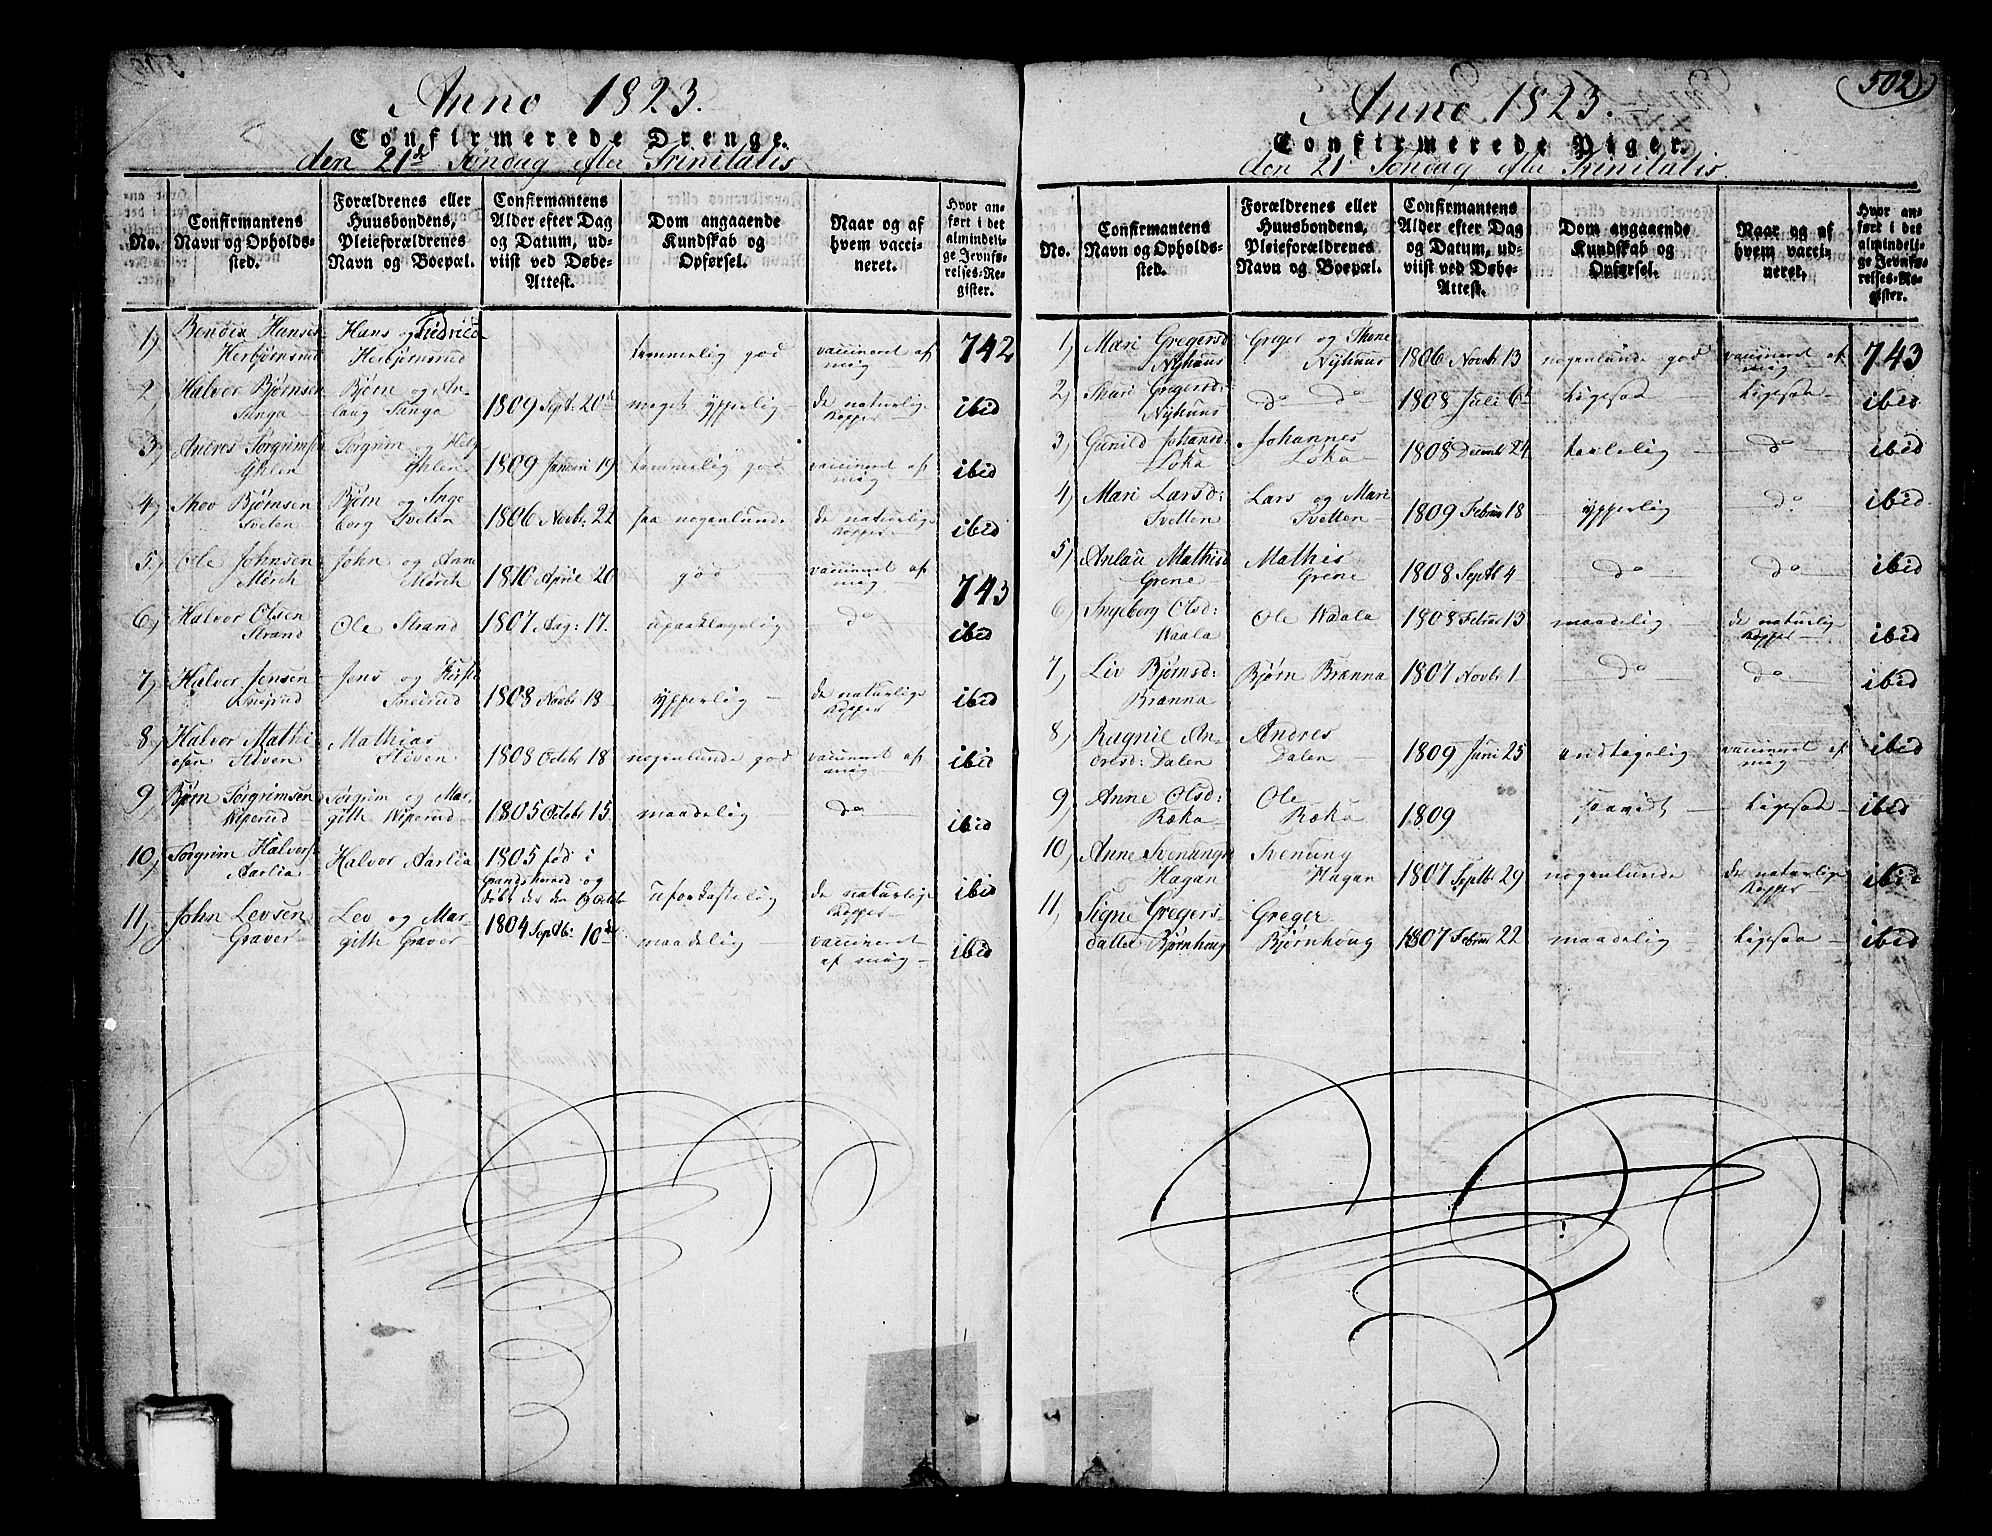 Anno 1823.
Confirmerede Drenge.
den 21de Søndag efter Trinitatis
No.
Confirmantens
Navn og Opholds-
sted.
Forældrenes eller
Huusbondens,
Pleieforældrenes
Navn og Boepæl.
Confirmantens
Alder efter Dag
og Datum, ud-
viist ved Døbe-
Attest.
Dom angaaende
Kundskab og
Opførsel.
Naar og af
hvem vacci-
neret.
Hvor an-
ført i det
almindeli-
ge Jevnfø-
relses-Re-
gister.
1, Hansen Hans og
Herbjørnsrud Herbjørnsrud tammelig god vaccineret af mig 742
2, Halvor Bjørnsen Bjørn og An-
Tinga laug Tinga 1809 Sept: 20de meget ypperlig de naturlige Kopper ibid
3, Andres Torgrimsen Torgrim og Helg
1809 Januari 19 tammelig god vaccineret af mig ibid
4, Thov Bjørnsen Bjørn og Inge
Tveten borg Tveten 1806 Novbr 22 saa nogenlunde de naturlige Kopper ibid
5, Ole Johnsen John og Anne
Mørch Mørch 1810 April 20 god vaccineret af mig 743
6, Halvor Olsen
Strand Ole Strand 1807 Aug: 17. upaaklagelig do ibid
7, Halvor Jensen Jens og
1808 Novbr 18 ypperlig de naturlige Kopper ibid
8, Halvor Mathi Mathias
esen Stiven Stiven 1808 Octobr 18 nogenlunde god vaccineret af mig ibid
9, Bjørn Torgrimsen Torgrim og Mar-
Wiperud gith Wiperud 1805 Octobr 15 maadelig do ibid
10, Torgrim Halvors:
Aarlia Halvor Aarlia 1805 fød i
Grandsherred og
døbt der den 19 Octobr uforkastelig de naturlige Kopper ibid
11, John Levsen Lev og Mar-
Graver gith Graver 1804 Septbr: 10de maadelig vaccineret af mig ibid
502
Anno 1823.
Confirmerede Piger.
den 21 Søndag efter Trinitatis.
No.
Confirmantens
Navn og Opholds-
sted.
Forældrenes eller
Huusbondens,
Pleieforældrenes
Navn og Boepæl.
Confirmantens
Alder efter Dag
og Datum, ud-
viist ved Døbe-
Attest.
Dom angaaende
Kundskab og
Opførsel.
Naar og af
hvem vacci-
neret.
Hvor an-
ført i det
almindeli-
ge Jevnfø-
relses-Re-
gister.
1, Mari Gregersd Greger og Thone
Nyhuus Nyhuus 1806 Novbr 13 nogenlunde god vaccineret af mig 743
2, Gregersd:
Nyhuus do do 1808 Juli 6te ligesaa ligesaa ibid
3, Gunild Johansd Johannes
Loka Loka 1808 Decembr 24 taalelig do ibid
4, Mari Larsd: Lars og Mari
Tvetten Tvetten 1809 Februar 18 ypperlig do ibid
5, Anlau Mathisd Mathis
Grene Grene 1808 Septbr 4 do do ibid
6, Ingeborg Olsd:
Waala Ole Waala 1808 Februar 13 maadelig de naturlig Kopper ibid
7, Liv Bjørnsd:
Brænna Bjørn Brænna 1807 Novbr 1 do do ibid
8, Ragnil An- Andres
dresd: Dalen Dalen 1809 Juni 25 vaccineret af mig ibid
9, Anne Olsd: Ole
Ræka Ræka 1809 ligesaa ibid
10, Anne Svenungs Svenung
Hagan Hagan 1807 Septbr 29 nogenlunde de naturlige Kopper ibid
11, Signe Gregers- Greger
datter Bjørnhoug Bjørnhoug 1807 Februar 22 maadelig ligesaa ibid